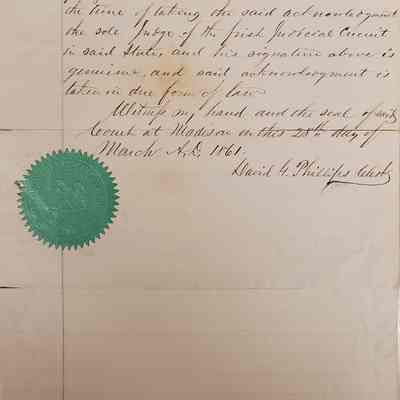 the time of taking the said acknowledgment
the sole Judge of the first Judicial Circuit
in said State, and his signature above is
genuine, and said acknowledgment is
taken in due form of law
Witness my hand and the seal of said
Court at Madison on this 28th day of
March A.D. 1861.
David G. Phillips Clerk